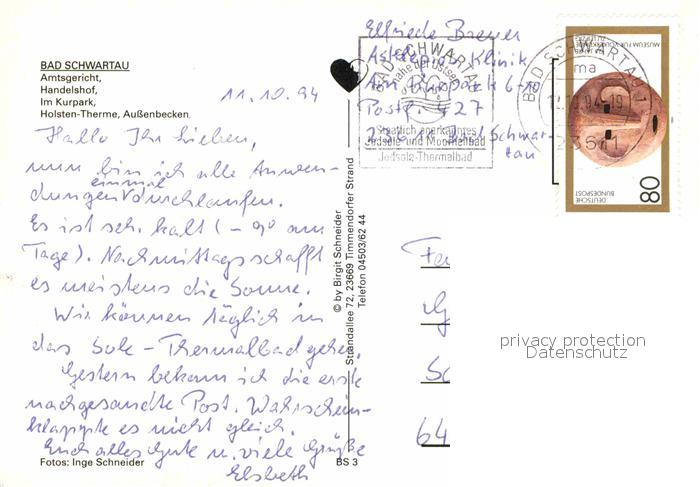 BAD SCHWARTAU
Amtsgericht,
Handelshof,
Im Kurpark,
Holsten-Therme, Außenbecken.
11.10.94
Hallo Ihr Lieben,
nun bin ich alle Anwen-
dungen einmal durchlaufen.
Es ist seh. kalt (-9° am
Tage). Nachmittags schafft
es meistens die Sonne.
Wir können täglich in
das Sole-Thermalbad gehen.
Gestern bekam ich die erste
nachgesandte Post. Wahrschein-
klappte es nicht gleich.
Euch alles Gute u. viele Grüße
Elsbeth
Fotos: Inge Schneider
BS 3
© by Birgit Schneider
Strandallee 72, 23669 Timmendorfer Strand
Telefon 04503/62 44
Elfriede Brewer
Asklepios Klinik
Am Kurpark 6-10
Postf. 427
23611 Bad Schwar-
tau
BAD SCHWARTAU
nahe der Ostsee
Staatlich anerkanntes
Jodsole- und Moorheilbad
Jodsole-Thermalbad
BAD SCHWARTAU 1
ma
-19
23611
80
DEUTSCHE
BUNDESPOST
MUSEUM FÜR VÖLKERKUNDE
64
privacy protection
Datenschutz